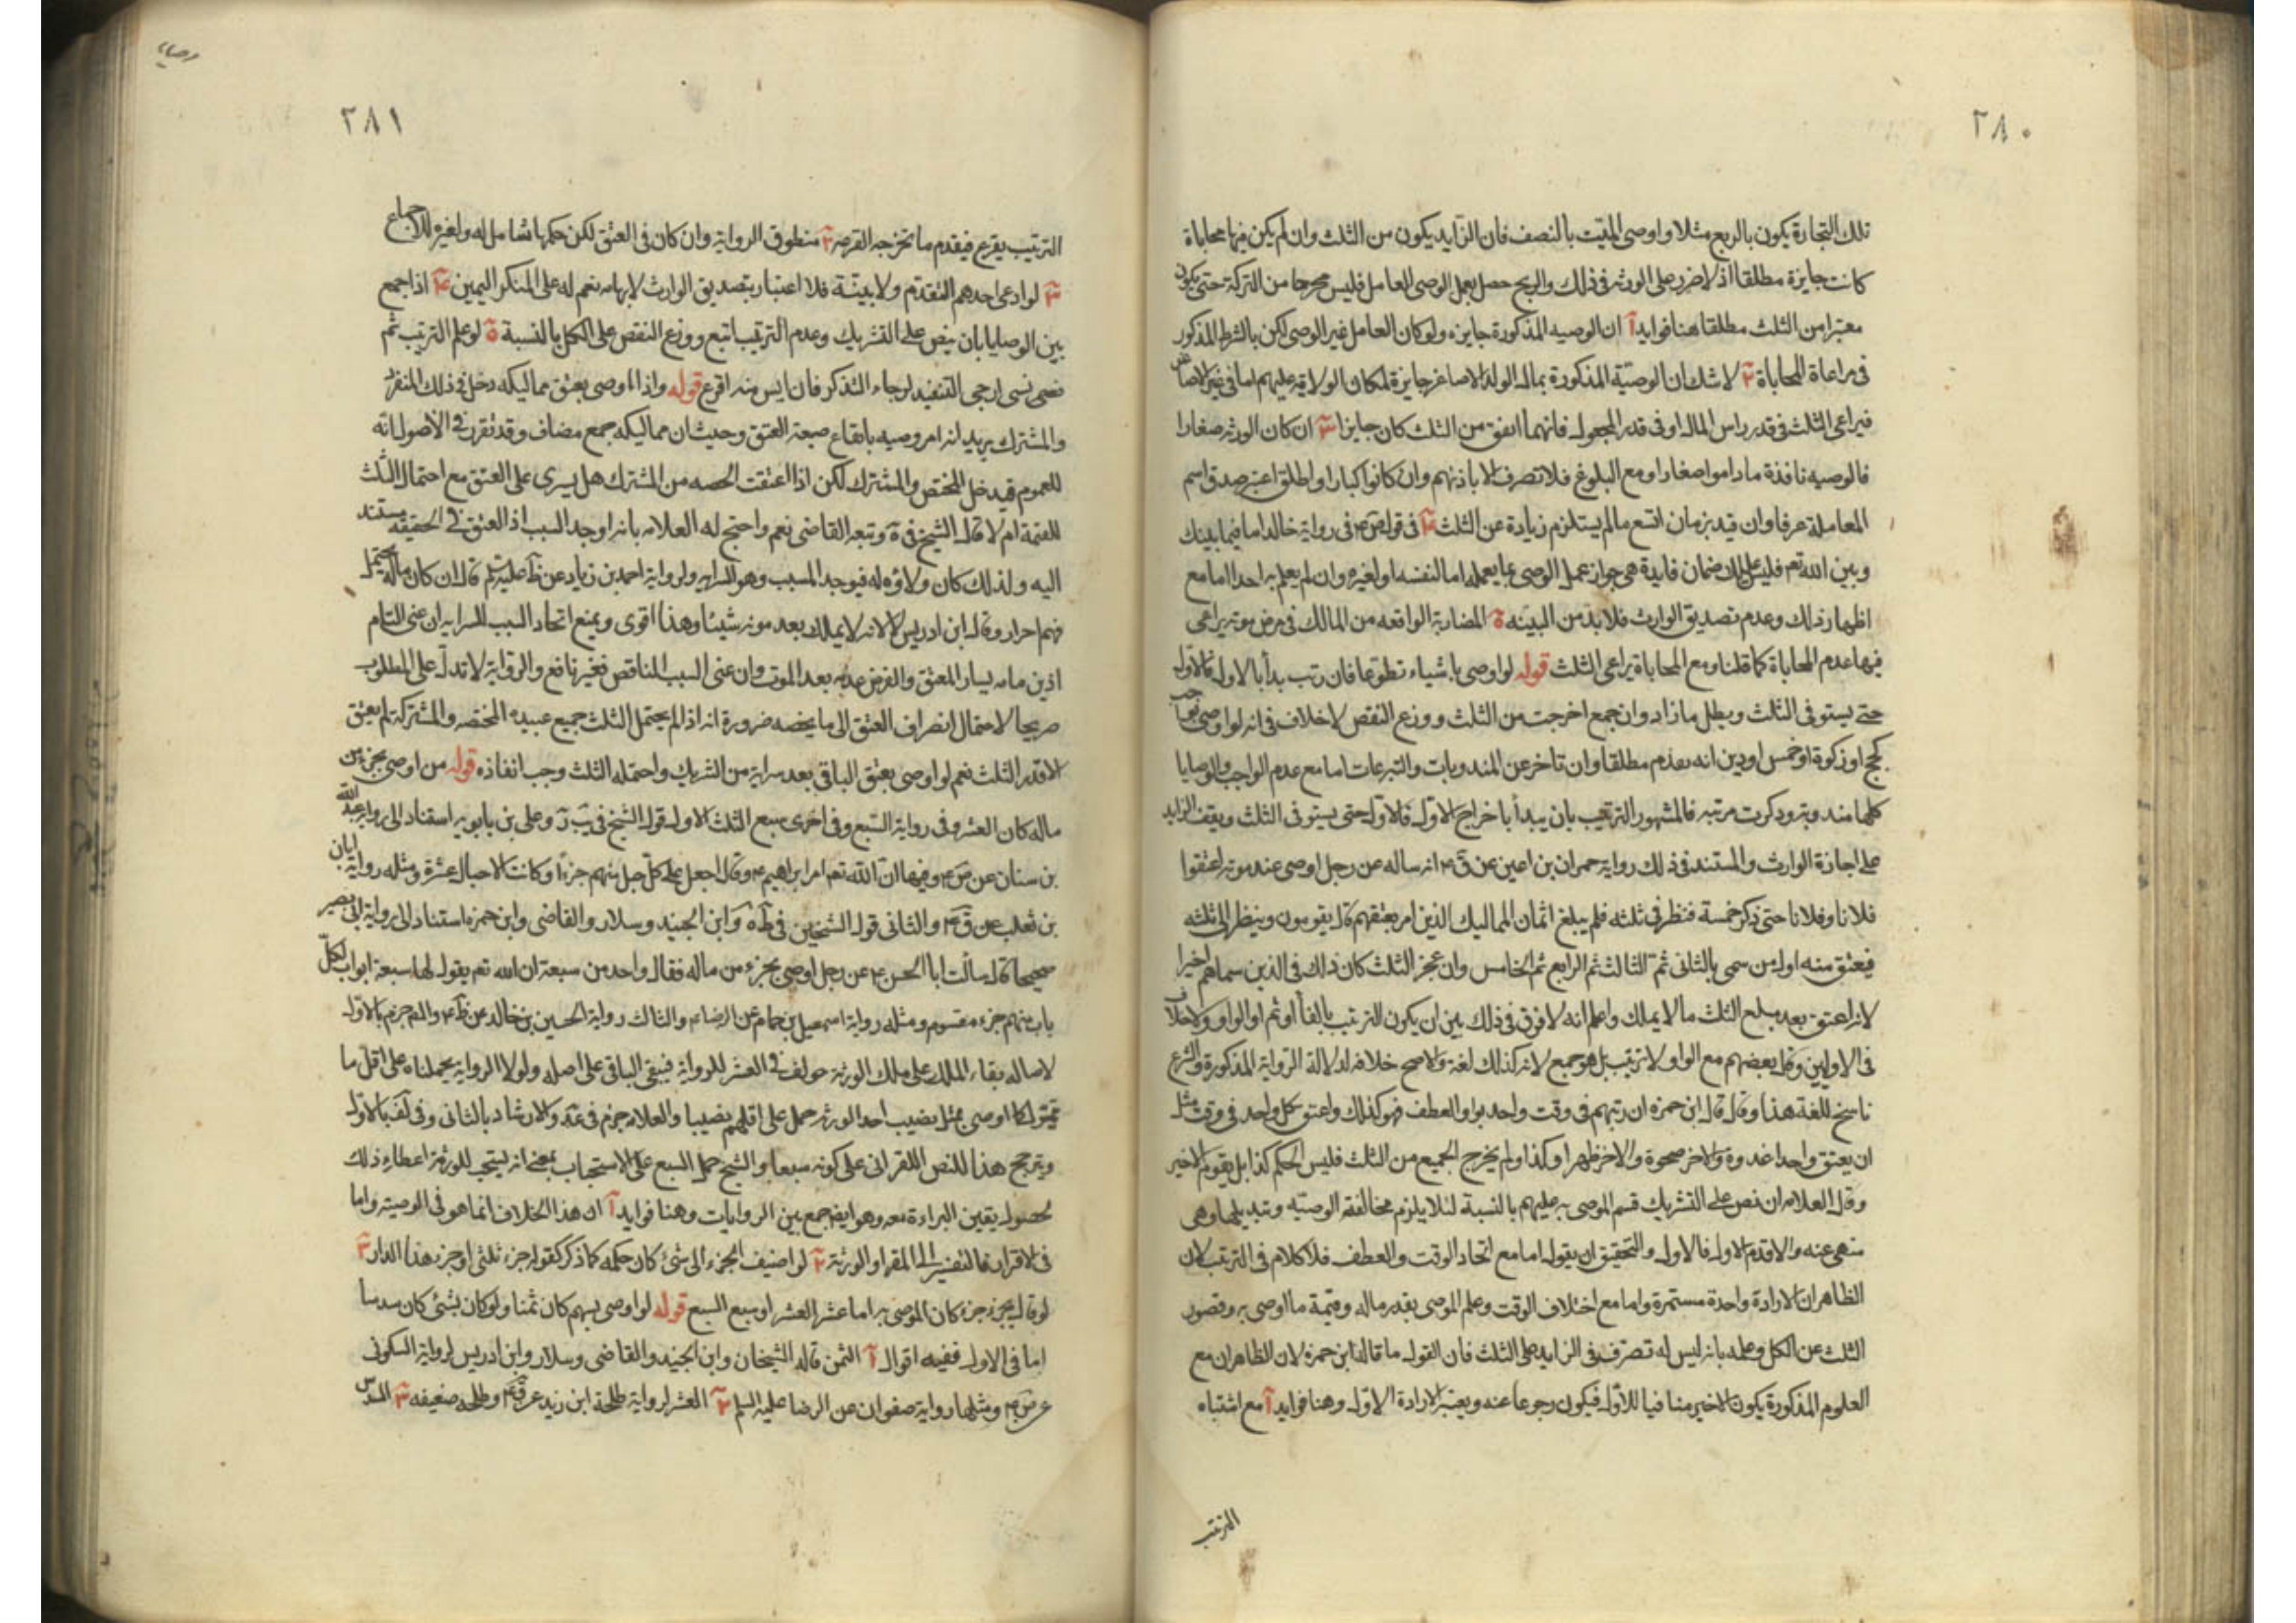 ٢٨٠
تلك التجارة يكون بالربع مثلا واوصى الميّت بالنصف فان الزايد يكون من الثلث وان لم يكن فيها محاباة
كانت جايزة مطلقا اذ لا ضرر على الورثه فى ذلك والربح حصل بعمل الوصى العامل فليس مخرجا من التركة حتى يكون
معتبرا من الثلث مطلقا هنا فوايد آ ان الوصيه المذكورة جايزه ولو كان العامل غير الوصى لكن بالشرط المذكور
فى مراعاة المحاباة ٢ لا شك ان الوصيّة المذكورة بمال الولد الاصاغر جايزة لمكان الولاية عليهم اما فى غير الاصاغر
فيراعى الثلث فى قدر راس المال او فى قدر المجعول فايهما اتفق من الثلث كان جايزا ٣ ان كان الورثه صغارا
فالوصيه نافذة ما داموا صغارا ومع البلوغ فلا تصرف الا باذنهم وان كانوا كبارا واطلق اعتبر صدق اسم
المعاملة عرفا وان قيد بزمان اتسع ما لم يستلزم زيادة عن الثلث ٤ فى قول ص ع فى رواية خالد اما فيما بينك
وبين الله تع فليس عليك ضمان فايدة هى جواز عمل الوصى بما يعمله اما لنفسه او لغيره وان لم يعلم به احدا اما مع
اظهار ذلك وعدم تصديق الوارث فلا بد من البينه ة المضاربة الواقعه من المالك فى مرض موته يراعى
فيها عدم المحاباة كما قلنا ومع المحاباة يراعى الثلث قوله لو اوصى باشياء تطوعا فان رتب بدأ بالاول فالاول
حتى يستوفى الثلث وبطل ما زاد وان جمع اخرجت من الثلث ووزع النقص لا خلاف فى انه لو اوصى بواجب
كحج او زكوة او خمس او دين انه يقدم مطلقا وان تاخر عن المندوبات والتبرعات اما مع عدم الواجب والوصايا
كلها مندوبة وذكرت مرتبه فالمشهور الترتيب بان يبدأ باخراج الاول فالاول حتى يستوفى الثلث ويقف الزايد
على اجازة الوارث والمستند فى ذلك رواية حمران بن اعين عن ق ع انه ساله عن رجل اوصى عند موته اعتقوا
فلانا وفلانا حتى ذكر خمسة فنظر فى ثلثه فلم يبلغ اثمان المماليك الذين امر بعتقهم قال يقومون وينظر الى ثلثه
فيعتق منه اول من سمى بالثانى ثم الثالث ثم الرابع ثم الخامس وان عجز الثلث كان ذلك فى الذين سماهم اخيرا
لانه اعتق بعد مبلغ الثلث ما لا يملك واعلم انه لا فرق فى ذلك بين ان يكون الترتيب بالفأ او ثم او الواو ولا خلاف
فى الاوليين وقال بعضهم مع الواو لا ترتيب بل هو جمع لانه كذلك لغة والاصح خلافه لدلالة الرواية المذكورة والشرع
ناسخ للغة هذا وقال قال ابن حمزه ان رتبهم فى وقت واحد بواو العطف فهو كذلك واعتق كل واحد فى وقت مثل
ان يعتق واحدا غدوة والاخر ضحوة والاخر ظهرا وكذا ولم يخرج الجميع من الثلث فليس الحكم كذا بل يقوم الاخير
وقال العلامه ان نص على التشريك قسم الموصى به عليهم بالنسبة لئلا يلزم مخالفة الوصيّة وتبديلها وهى
منهى عنه والا قدم الاول فالاول والتحقيق ان يقول اما مع اتحاد الوقت والعطف فلا كلام فى الترتيب لان
الظاهر ان الارادة واحدة مستمرة واما مع اختلاف الوقت وعلم الموصى بقدر ماله وقيمة ما اوصى به وقصور
الثلث عن الكل وعلمه بانه ليس له تصرف فى الزايد على الثلث فان القول ما قاله ابن حمزه لان الظاهر ان مع
العلوم المذكورة يكون الاخير منافيا للاول فيكون رجوعا عنه ويعتبر الارادة الاول وهنا فوايد آ مع اشتباه
الترتيب
وصايا
٢٨١
الترتيب يقرع فيقدم ما تخرجه القرعه ٢ منطوق الرواية وان كان فى العتق لكن حكمها شامل له ولغيره للاجماع
٣ لو ادعى احدهم التقدم ولا بيّنة فلا اعتبار بتصديق الوارث لابهامه نعم له على المنكر اليمين ٤ اذا جمع
بين الوصايا بان ينص على التشريك وعدم الترتيب اتبع ووزع النقص على الكل بالنسبة ة لو علم الترتيب ثم
نسى ارجى التنفيذ لرجاء التذكر فان ايس منه اقرع قوله واذا اوصى بعتق مماليكه دخل فى ذلك المنفرد
والمشترك يريد انه امر وصيه بايقاع صيغة العتق وحيث ان مماليكه جمع مضاف وقد تقرر فى الاصول انه
للعموم فيدخل المختص والمشترك لكن اذا اعتقت الحصه من المشترك هل يسرى على العتق مع احتمال الثلث
للقيمة ام لا قال الشيخ فى ة وتبعه القاضى نعم واحتج له العلامه بانه اوجد السبب اذ العتق فى الحقيقه مستند
اليه ولذلك كان ولاؤه له فيوجد المسبب وهو السرايه ولرواية احمد بن زياد عن ظ عليه السلم قال ان كان ماله يحتمل
فهم احرار وقال ابن ادريس لا لانه لا يملك بعد موته شيئا وهذا اقوى ويمنع اتحاد السبب للسرايه ان عنى التام
اذ من يسار المعتق والفرض عدمه بعد الموت وان عنى السبب الناقص فغير نافع والرواية لا تدل على المطلوب
صريحا لاحتمال انصراف العتق الى ما يخصه ضرورة انه اذا لم يحتمل الثلث جميع عبيده المختصه والمشتركه لم يعتق
الا قدر الثلث نعم لو اوصى بعتق الباقى بعد شرايه من الشريك واحتمله الثلث وجب انفاذه قوله من اوصى بجزء من
ماله كان العشر وفى رواية السّبع وفى اخرى سبع الثلث الاول قول الشيخ فى يب وعلى بن بابويه استنادا الى رواية عبد الله
بن سنان عن ص ع وفيها ان الله تعم امر ابراهيم ع وقال اجعل على كل جبل منهم جزءا وكانت الاجبال عشرة ومثله رواية ابان
بن ثعلب عن ق ع والثانى قول الشيخين فى ة وابن الجنيد وسلار والقاضى وابن حمزه استنادا الى رواية ابى بصير
صحيحا قال سالت ابا الحسن ع عن رجل اوصى بجزء من ماله فقال واحد من سبعة ان الله تعم يقول لها سبعة ابواب لكلّ
باب منهم جزء مقسوم ومثله رواية اسمعيل بن همام عن الرضا ع والثالث رواية الحسين بن خالد عن ظ ع والمص جزم بالاول
لاصاله بقاء الملك على ملك الورثه خولف فى العشر للرواية فيبقى الباقى على اصله ولولا الرواية لحملناه على اقل ما
يتمول كما اوصى بمثل نصيب احد الورثه حمل على اقلهم نصيبا والعلامه جزم فى عد والارشاد بالثانى وفى لف بالاول
ويترجح هذا للنص القرانى على كونه سبعا والشيخ حمل السبع على الاستحباب بمعنى انه يستحب للورثه اعطاء ذلك
لحصول يقين البراءة معه وهو ايضا جمع بين الروايات وهنا فوايد آ ان هذا الخلاف انما هو فى الوصيّه واما
فى الاقرار فالتفسير الى المقر او الورثة ٢ لو اضيف الجزء الى شئ كان حكمه كما ذكر كقوله جزء ثلثى او جزء هذا الدار ٣
لو قال بجزء جزء كان الموصى به اما عشر العشر او سبع السبع قوله لو اوصى بسهم كان ثمنا ولو كان بشئ كان سدسا
اما فى الاول ففيه اقوال آ الثمن قاله الشيخان وابن الجنيد والقاضى وسلار وابن ادريس لرواية السكونى
عن ص ع ومثلها رواية صفوان عن الرضا عليه السلم ٢ العشر لرواية طلحة ابن زيد عن ق ع وطلحه ضعيفه ٣ السدس